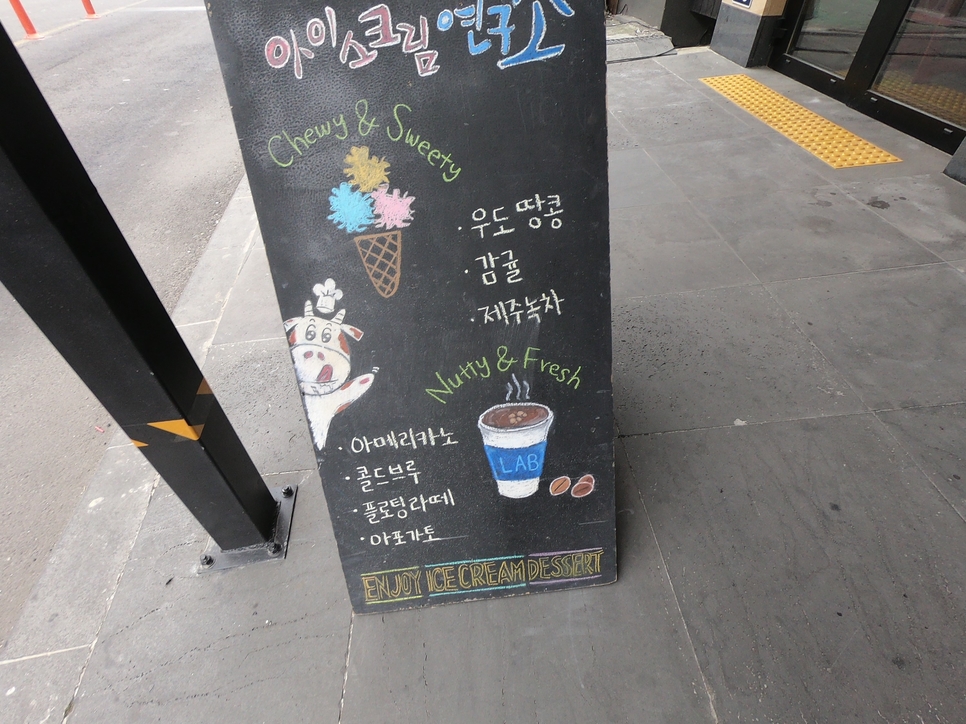 아이스크림 연구소
Chewy & Sweety
· 우도 땅콩
· 감귤
· 제주녹차
Nutty & Fresh
LAB
· 아메리카노
· 콜드브루
· 플로팅라떼
· 아포가토
ENJOY ICE CREAM DESSERT